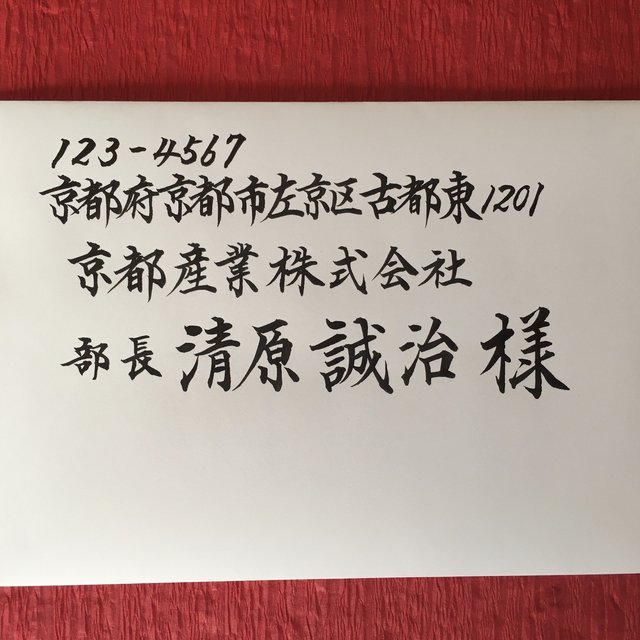 123-4567
京都府京都市左京区古都東1201
京都産業株式会社
部長 清原誠治様